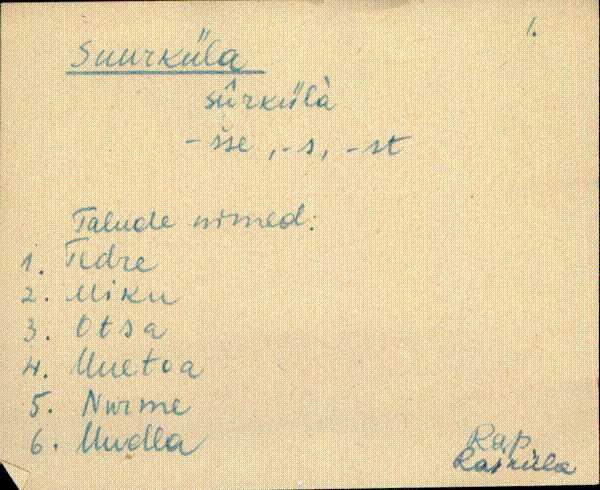 1.
Suurküla
sûrkülà
-šse, -s, -st
Talude nimed:
1. Tedre
2. Miku
3. Otsa
4. Uuetoa
5. Nurme
6. Uudla
Rap